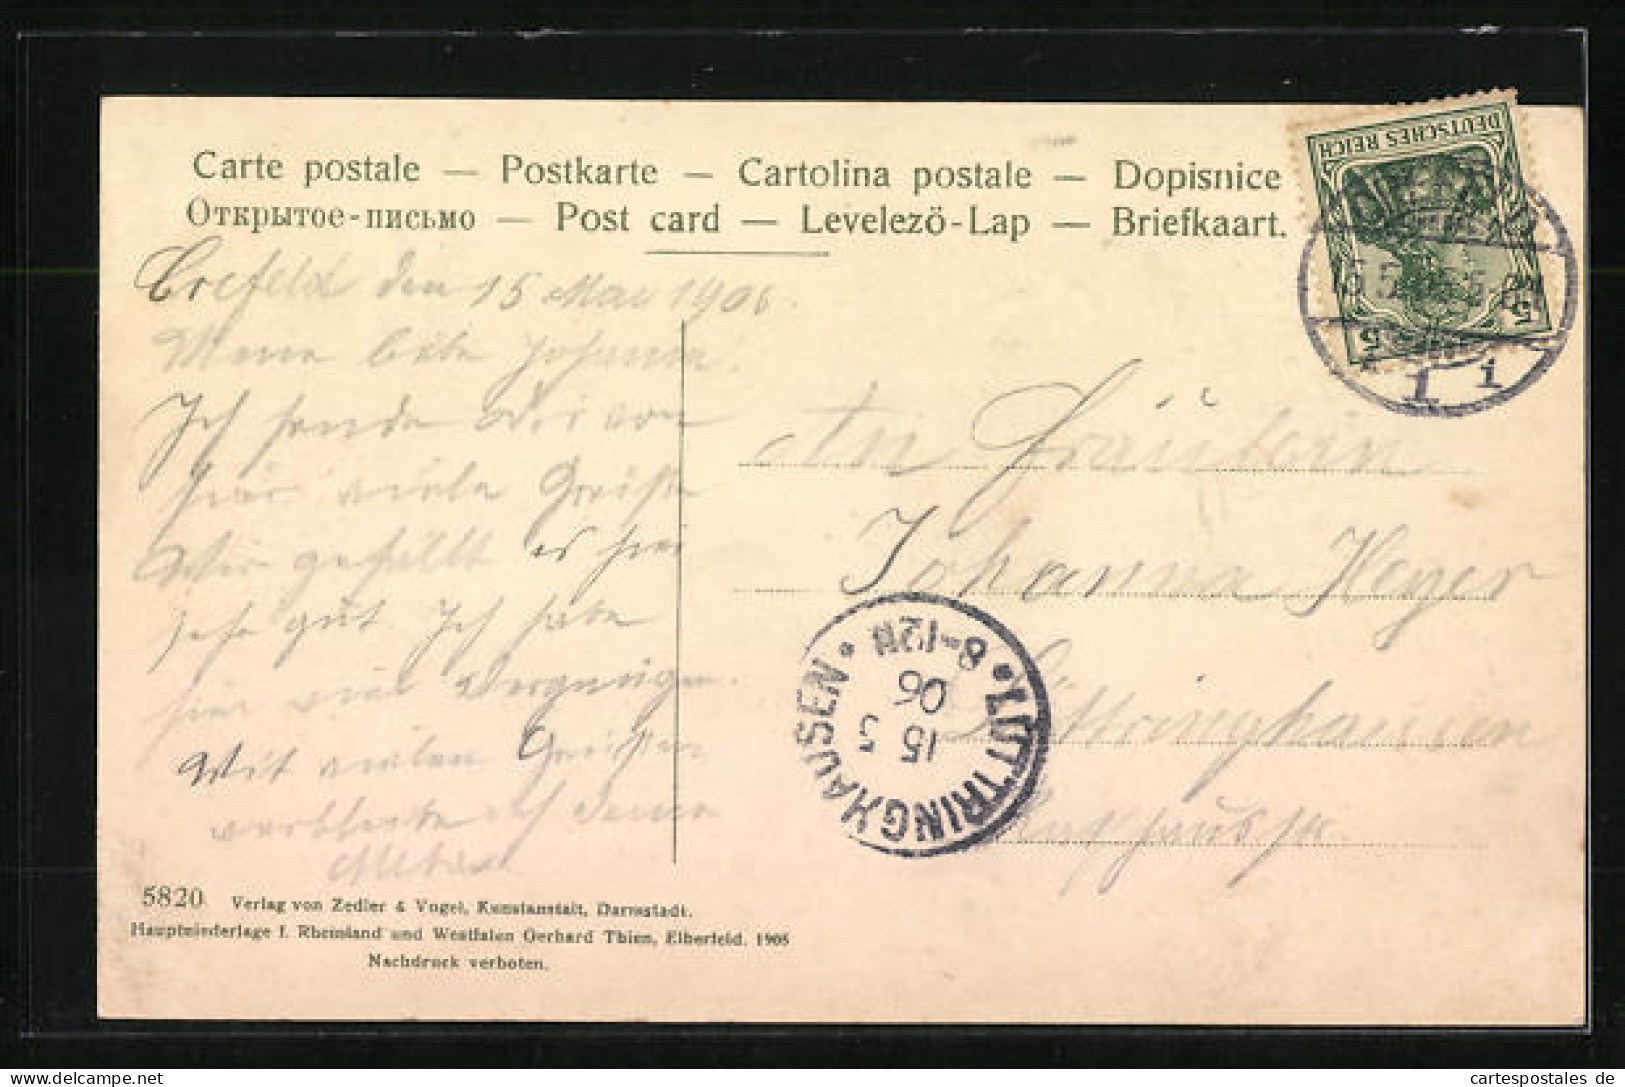 Carte postale — Postkarte — Cartolina postale — Dopisnice
Открытое-письмо — Post card — Levelező-Lap — Briefkaart.
DEUTSCHES REICH
5 5
1 i
Crefeld den 15 Mai 1906.
Meine liebe Johanna.
Ich sende Dir von
hier viele Grüße
Mir gefällt es hier
sehr gut. Ich habe
hier viel Vergnügen.
Mit vielen Grüßen
verbleibe ich Deine
An Fräulein
Johanna Heyer
Lüttringhausen
LÜTTRINGHAUSEN
15 5
06
8-12N
5820 Verlag von Zedler & Vogel, Kunstanstalt, Darmstadt.
Hauptniederlage f. Rheinland und Westfalen Gerhard Thien, Elberfeld. 1905
Nachdruck verboten.
cartespostales de